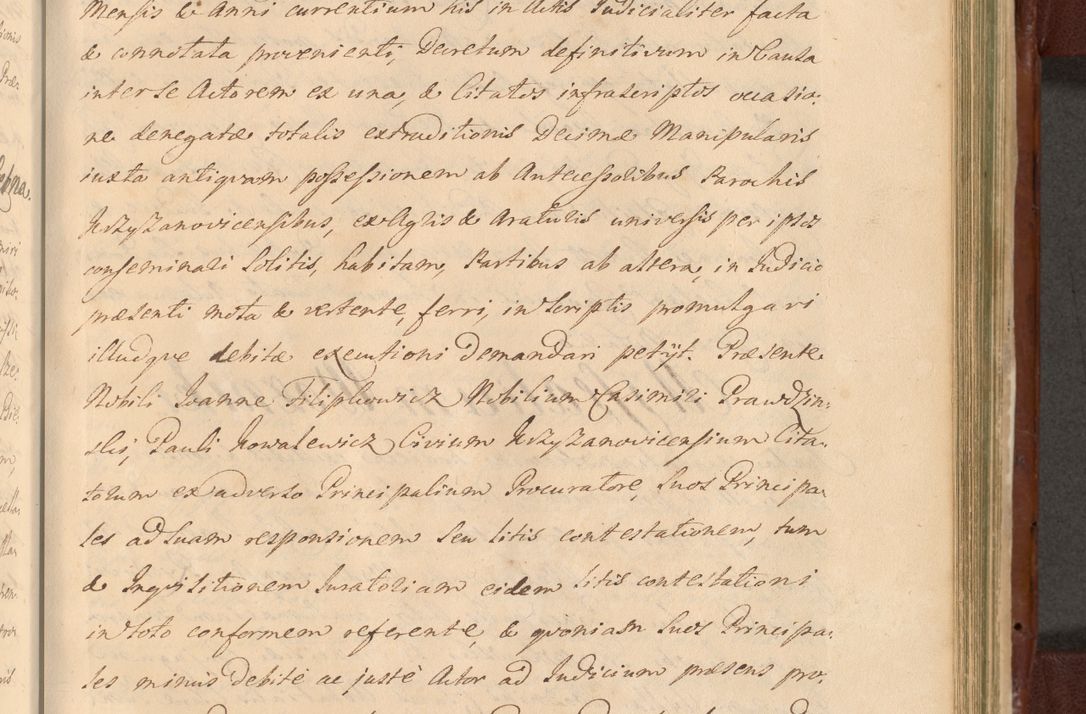 Mensis & Anni currentium his in Actis Judicialiter facta
& connotata provenienti, Decretum definitivum in Causa
inter se Actorem ex una, & Citatos infrascriptos occasio:
ne denegatæ totalis extraditionis Decimæ Manipularis
iuxta antiqvam possessionem ab Antecessoribus Parochis
Krzyzanovicensibus, ex Agris & Araturis universis per ipsos
conseminari Solitis, habitam, Partibus ab altera, in Judicio
præsenti mota & vertente, ferri, in Scriptis promulgari
illudqve debitæ executioni Demandari petÿt. Præsente
Nobili Joanne Filipkowicz Nobilium Casimiri Prawdzin:
ski, Pauli Kowalewicz Civium Krzyzanovicensium Cita:
torum ex adverso Principalium Procuratore, Suos Principa:
les ad Suam responsionem Seu litis contestationem, tum
& Inqvisitionem Juratoriam eidem litis contestationi
in toto conformem referente, & qvoniam Suos Principa:
les minus Debite ac justè Actor ad Judicium præsens pro: